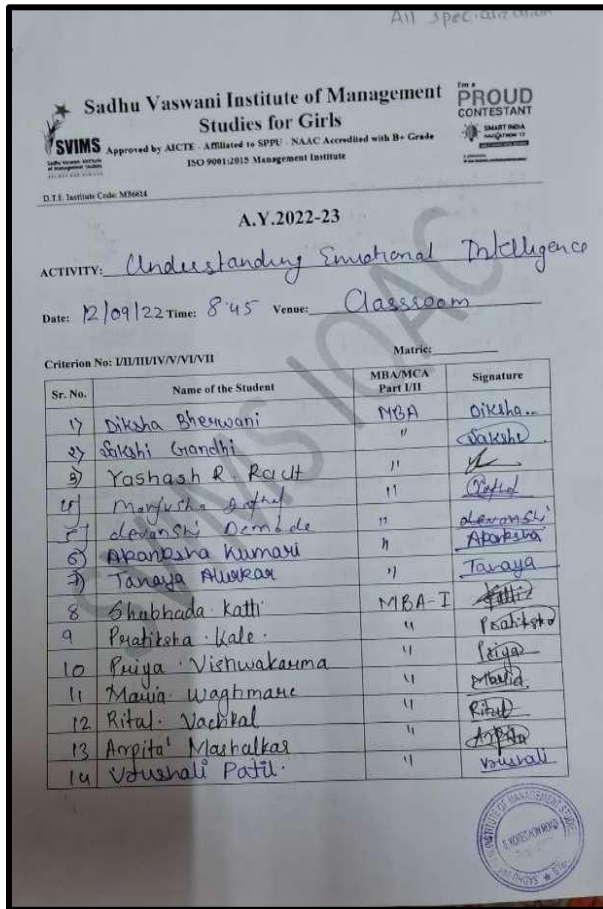 All specialization
Sadhu Vaswani Institute of Management
Studies for Girls
SVIMS
Approved by AICTE - Affiliated to SPPU - NAAC Accredited with B+ Grade
ISO 9001:2015 Management Institute
I'm a
PROUD
CONTESTANT
SMART INDIA
D.T.E. Institute Code: MB6614
A.Y.2022-23
ACTIVITY: Understanding Emotional Intelligence
Date: 12/09/22 Time: 8:45 Venue: Classroom
Criterion No: I/II/III/IV/V/VI/VII Matric:
Sr. No. Name of the Student MBA/MCA Part I/II Signature
1) Diksha Bherwani MBA Diksha..
2) Sakshi Gandhi " Sakshi
3) Yashash R. Raut "
4) Manjusha "
5) devanshi Demode " devanshi
6) Akanksha Kumari " Akanksha
7) Tanaya Alurkar " Tanaya
8 Shubhada. Katti MBA-I Katti
9 Pratiksha. Kale. " Pratiksha
10 Priya. Vishwakarma " Priya
11 Maria. Waghmare " Maria
12 Rital. Vachkal " Rital
13 Arpita Mashalkar " Arpita
14 Vaushali Patil. " Vaushali
SVIMS IQAC
INSTITUTE OF MANAGEMENT STUDIES
6 KOREGAON ROAD